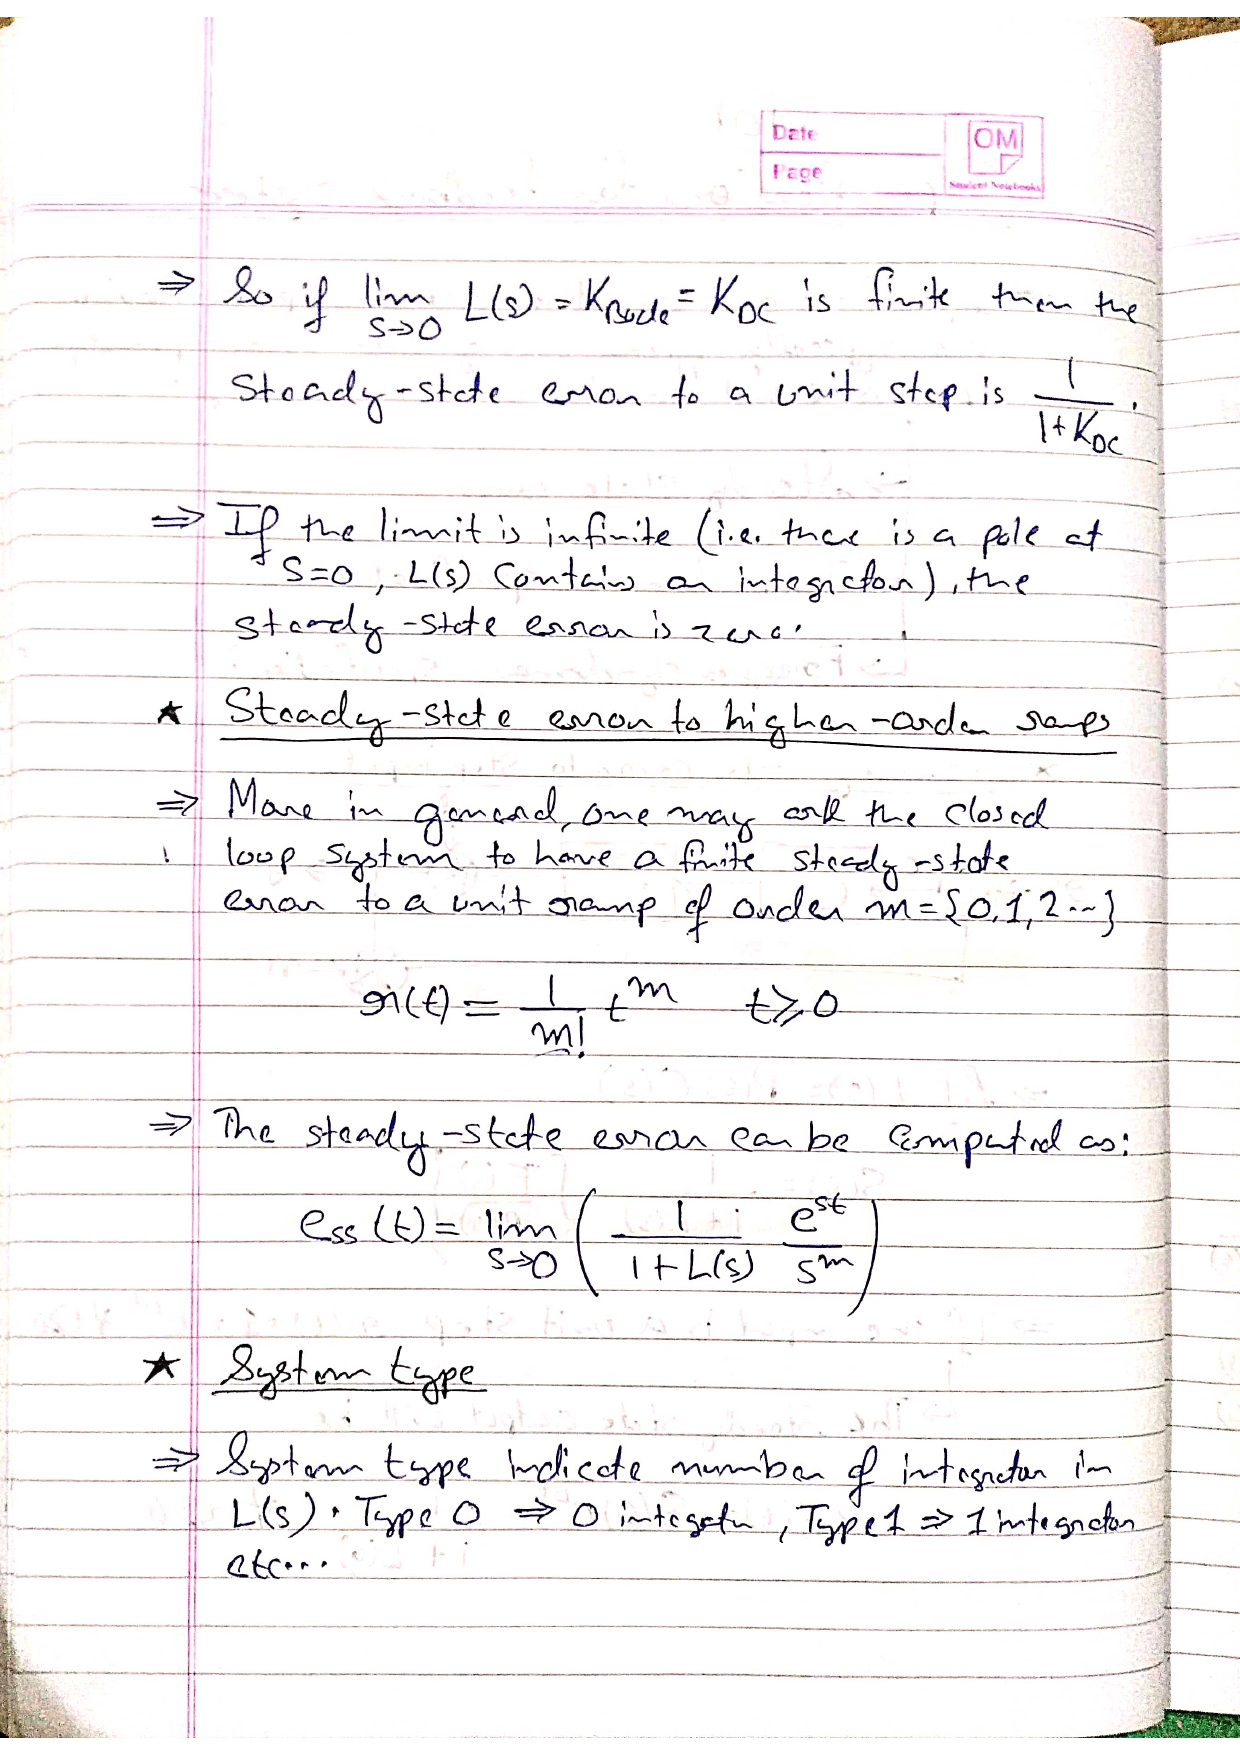 Date
Page
OM
Student Notebooks
⇒ So if lim L(s) = K_Bode = K_DC is finite then the
s→0
steady-state error to a unit step is 1/(1+K_DC).
⇒ If the limit is infinite (i.e. there is a pole at
s=0, L(s) contains an integrator), the
steady-state error is zero.
★ Steady-state error to higher-order ramps
⇒ More in general, one may ask the closed
loop system to have a finite steady-state
error to a unit ramp of order m={0,1,2...}
r(t) = 1/m! t^m t≥0
⇒ The steady-state error can be computed as:
e_ss(t) = lim s→0 ( 1/(1+L(s)) e^st/s^m )
★ System type
⇒ System type indicate number of integrator in
L(s). Type 0 ⇒ 0 integrator, Type 1 ⇒ 1 integrator
etc...